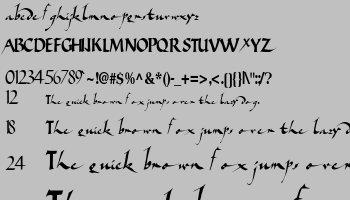 abcdefghijklmnopqrstuvwxyz
ABCDEFGHIJKLMNOPQRSTUVWXYZ
0123456789 ~!@#$%^&*()-_+=>,<.(){}|\":;/?
12 The quick brown fox jumps over the lazy dog.
18 The quick brown fox jumps over the lazy d
24 The quick brown fox jumps over